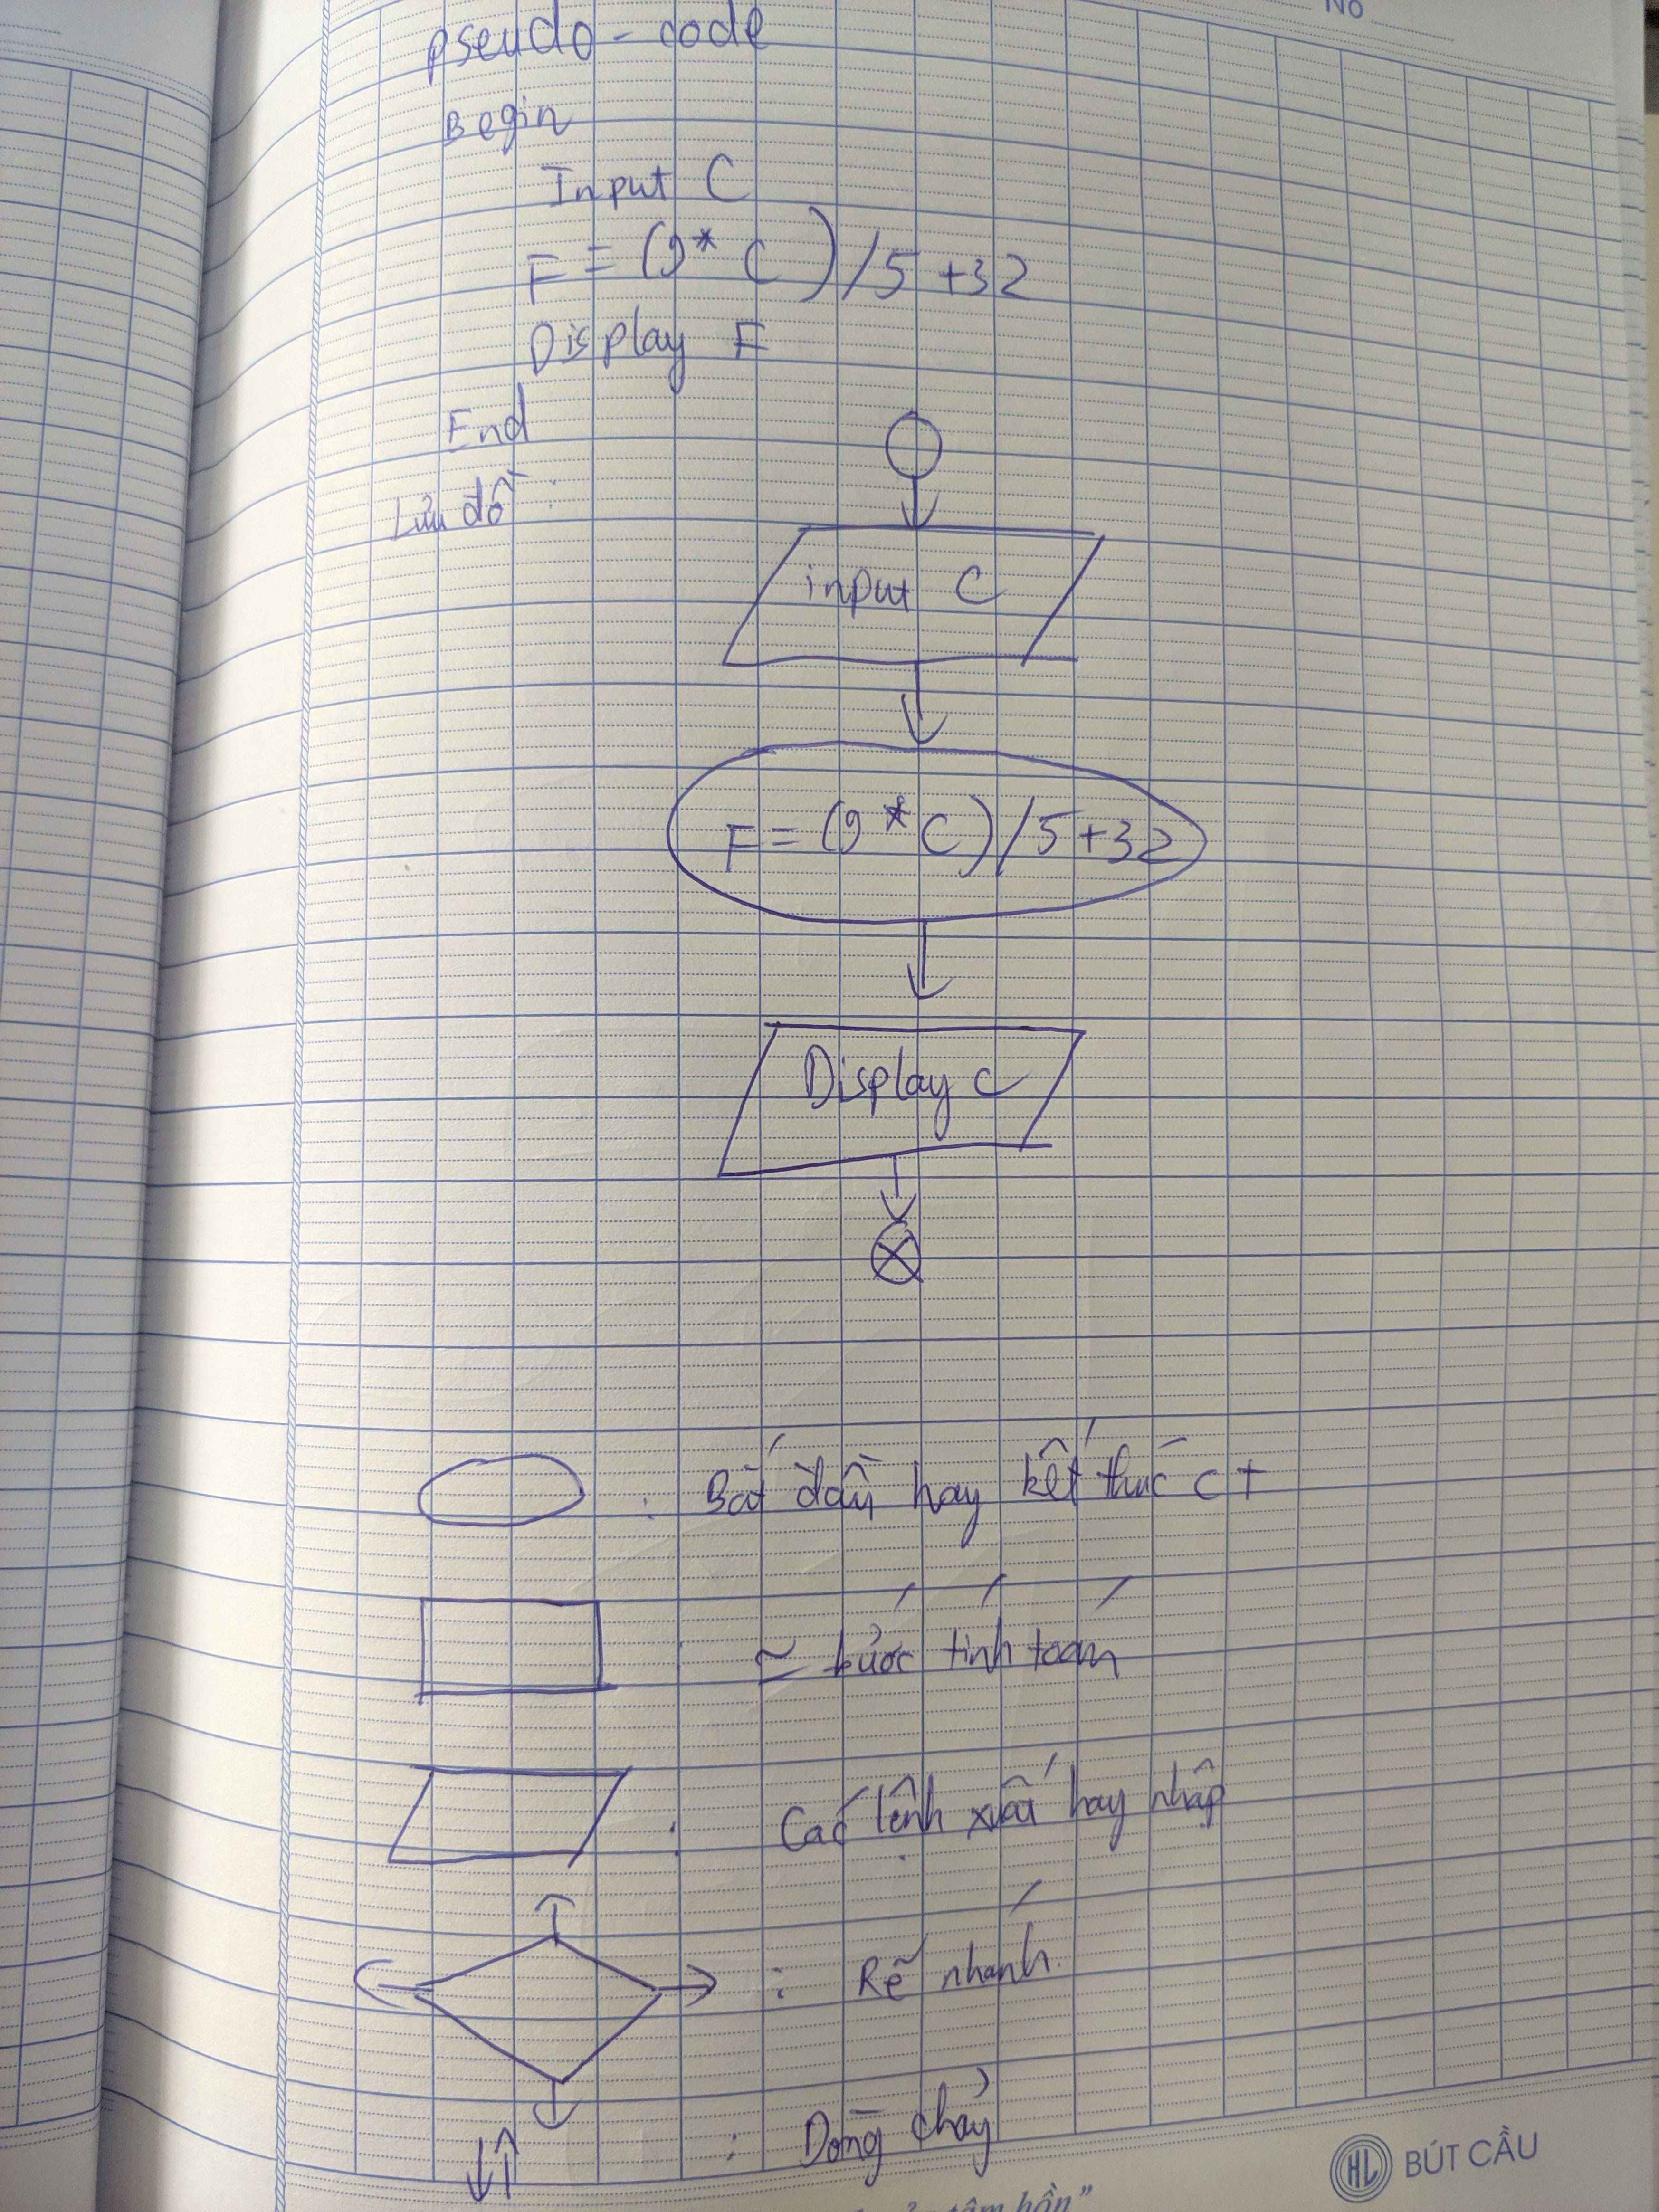 No
pseudo - code
Begin
Input C
F = (9* C)/5 +32
Display F
End
Lưu đồ :
input C
F = (9 * C)/5+32
Display C
: Bắt đầu hay kết thúc CT
: ~ bước tính toán
: Các lệnh xuất hay nhập
: Rẽ nhánh
: Dòng chảy
HL BÚT CẦU
tâm hồn”